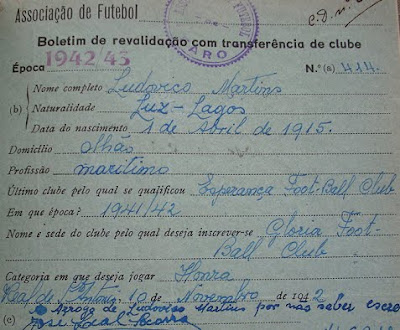 Associação de Futebol
FUTEBOL
FARO
C.D.
Boletim de revalidação com transferência de clube
Época 1942/43 N.º (a) 414.
Nome completo Ludovico Martins
(b) Naturalidade Luz-Lagos
Data do nascimento 1 de Abril de 1915.
Domicílio Olhão
Profissão maritimo
Último clube pelo qual se qualificou Esperança Foot-Ball Club
Em que época? 1941/42
Nome e sede do clube pelo qual deseja inscrever-se Gloria Foot-
Ball Club
Categoria em que deseja jogar Honra
António, 10 de Novembro de 1942
A rogo de Ludovico Martins por não saber escre
(c) José